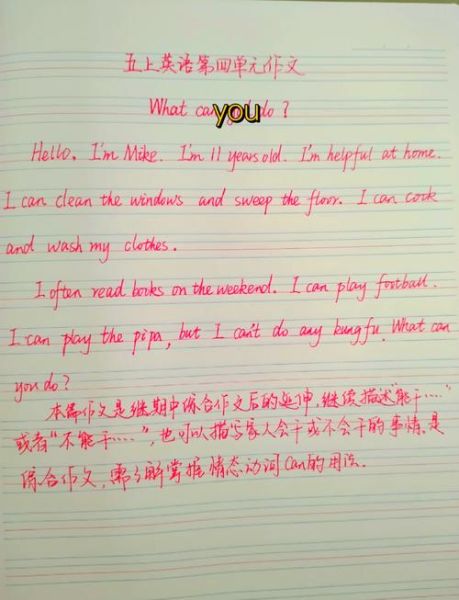 五上英语第四单元作文
What can you do?
Hello, I'm Mike. I'm 11 years old. I'm helpful at home.
I can clean the windows and sweep the floor. I can cook
and wash my clothes.
I often read books on the weekend. I can play football.
I can play the pipa, but I can't do any kung fu. What can
you do?
本篇作文是继期中综合作文后的延伸，继续描述“能干……”
或者“不能干……”，也可以描写家人会干或不会干的事情.是
综合作文，需了解掌握情态动词Can的用法.